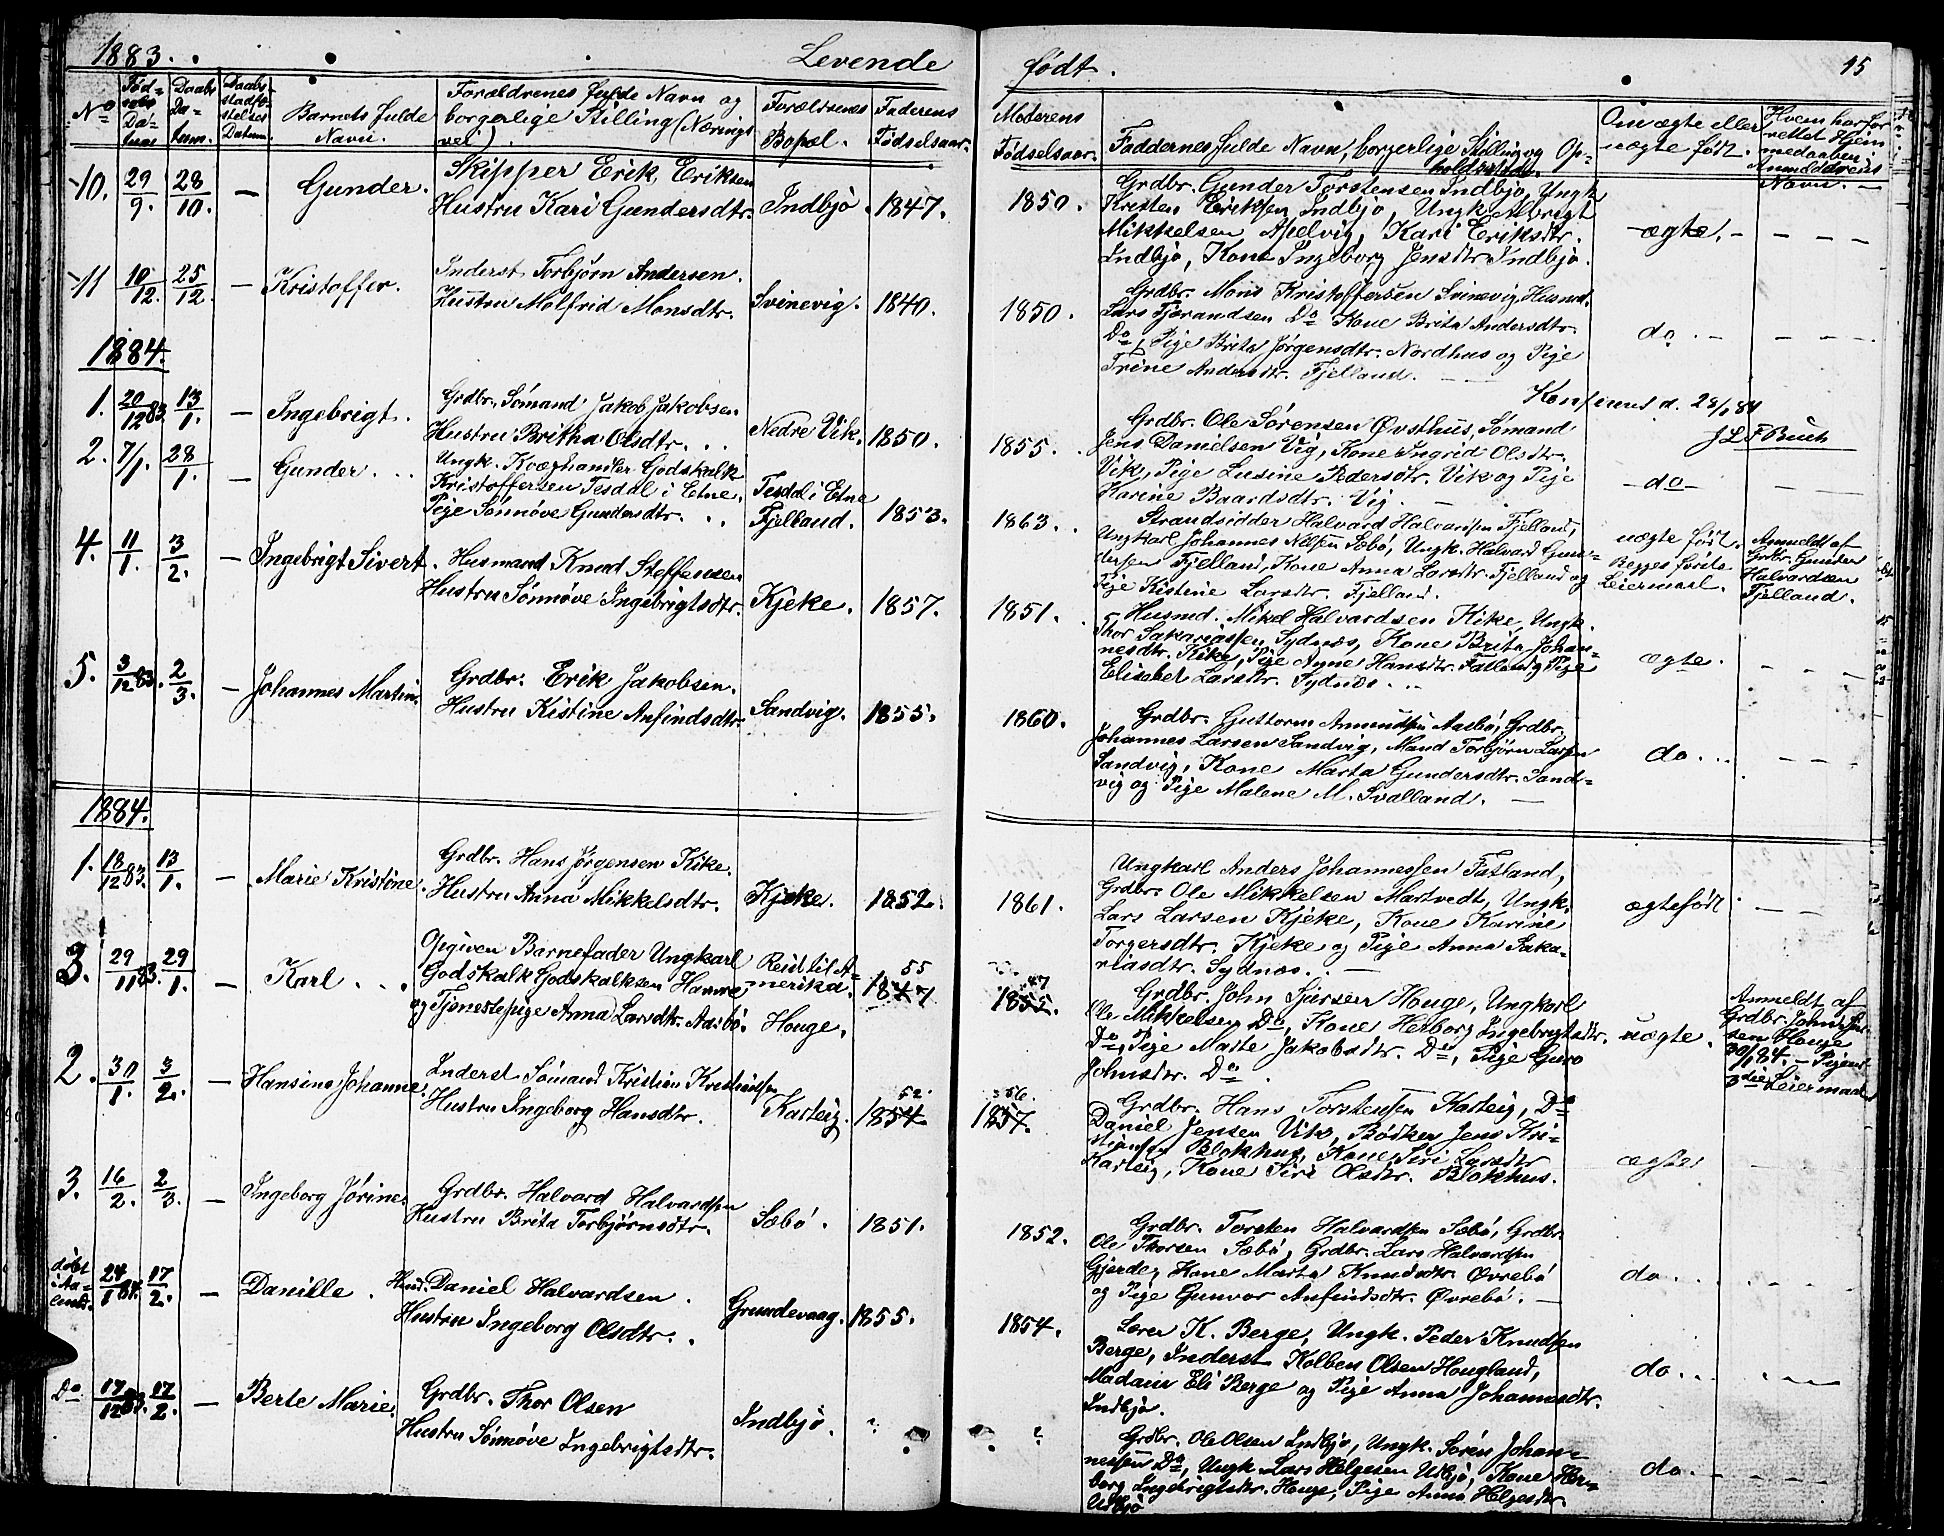 1883. Levende født. 15
No
Fødsels Datum
Daabs Datum.
Daabs stadfæstelses Datum.
Barnets fulde Navn.
Forældrenes fulde Navn og borgerlige Stilling (Næringsvei)
Forældrenes Bopæl.
Faderens Fødselsaar.
Moderens Fødselsaar.
Faddernes fulde Navn, borgerlige Stilling og Opholdssted.
Om ægte eller uægte født.
Hvem har forrettet Hjemmedaaben Anmelderens Navn.
10. 29/9. 28/10. — Gunder.
Skipper Erik Eriksen
Hustru Kari Gundersdtr. Indbjø 1847.
1850.
Grdbr. Gunder Torstensen Indbjo, Ungk.
Kristen Eriksen Indbjo, Ungk. Albrigt
Mikkelsen Apelvig, Kari Eriksdtr.
Indbjo, Kone Ingeborg Jensdtr Indbjo.
ægte. — — — —
11 10/12. 25/12. — Kristoffer.
Inderst Torbjørn Andersen.
Hustru Molfrid Monsdtr. Svinevig. 1840.
1850.
Grdbr. Mons Kristoffersen Svinevig, Husmd.
Lars Tjerandsen Do Kone Brita Andersdtr.
Do, Pige Brita Jørgensdtr. Nordhus og Pige
Trine Andersdtr. Fjelland.
do. — — — —
1884.
Konfirerat d. 28/1 84
J L F Buch
1. 20/12 83 13/1. — Ingebrigt.
Grdbr. Sømand Jakob Jakobsen
Hustru Britha Olsdtr. Nedre Vik. 1850.
1855.
Grdbr. Ole Sørensen Øvsthus, Sømand
Jens Danielsen Vig, Kone Ingrid Olsdtr.
Vik, Pige Lusine Pedersdtr. Vik og Pige
Karine Baardsdtr. Vig.
— do —
2. 7/1. 28/1. — Gunder.
Ungk. Kvæghandler Godskalk
Kristoffersen Tesdal i Etne,
Pige Sønnøve Gundersdtr.
Tesdal i Etne
Fjelland. 1853.
1863.
Strandsidder Halvard Halvardsen Fjelland,
Ungkarl Johannes Nilsen Sæbø, Ungk. Halvard Gundersen Fjelland, Kone Anna Larsdtr. Fjelland og
Pige Kistine Larsdtr. Fjelland.
uægte født.
Begges første
Leiermaal.
Anmeldt af
Grdbr. Gunder
Halvardsen
Fjelland.
4. 11/1. 3/2. — Ingebrigt Sivert.
Husmand Knud Steffensen
Hustru Sønnøve Ingebrigtsdtr. Kjeke. 1857.
1851.
Husmd. Mikel Halvardsen Kike, Ungk.
Thor Sakariassen Sydnæs, Kone Brita Johannesdtr. Kike, Pige Anne Hansdtr. Fatland, Pige
Elisabet Larsdtr. Sydnæs.
ægte.
5. 3/12 83. 2/3. — Johannes Martin.
Grdbr. Erik Jakobsen.
Hustru Kistine Anfindsdtr. Sandvig. 1855.
1860.
Grdbr. Guttorm Amundsen Aasbø, Grdbr.
Johannes Larsen Sandvig, Mand Torbjørn Larsen
Sandvig, Kone Marta Gundersdtr. Sandvig og Pige Malene M. Svalland.
do.
1884.
1. 18/12 83. 13/1. — Marie Kristine.
Grdbr. Hans Jørgensen Kike.
Hustru Anna Mikkelsdtr. Kjeke. 1852.
1861.
Ungkarl Anders Johannessen Fatland,
Grdbr. Ole Mikkelsen Martvedt, Ungk.
Lars Larsen Kjeke, Kone Karine
Torgersdtr. Kjeke og Pige Anna Sakariasdtr. Sydnæs.
ægtefødt
3. 29/11 83. 29/1. — Karl.
Opgiven Barnefader Ungkarl
Godskalk Godskalksen Hamre
og Tjenestepige Anna Larsdtr. Aasbø.
Reist til Amerika.
Houge.
55
1847
47
1855.
Grdbr. John Sjursen Houge, Ungkarl
Ole Mikkelsen Do, Kone Herborg Ingebrigtsdtr.
Do, Pige Marte Jakobsdtr. Do, Pige Guro
Johnsdtr. Do.
uægte.
Anmeldt af
Grdbr. John Sjursen Houge
30/1 84. — Pigens
3die Leiermaal
2. 30/1. 3/2. — Hansine Johanne.
Inderst Sømand Kristian Kristiansen
Hustru Ingeborg Hansdtr. Karteig.
52.
1854.
56.
1857.
Grdbr. Hans Torstensen Karteig, Do
Daniel Jensen Vik, Bødker Jens Kristiansen Blokhus, Kone Siri Larsdtr
Karteig, Kone Siri Olsdtr. Blokhus.
ægte.
3. 16/2. 2/3. — Ingeborg Jørine.
Grdbr. Halvard Halvardsen
Hustru Brita Torbjørnsdtr. Sæbø. 1851.
1852.
Grdbr. Torsten Halvardsen Sæbø, Grdbr.
Ole Thorsen Sæbø, Grdbr. Lars Halvardsen
Gjerde, Kone Marta Knudsdtr. Øvrebø
og Pige Gunvor Anfindsdtr. Øvrebø.
do.
døbt
24/1 84. 17/2. — Danille.
Husd. Daniel Halvardsen.
Hustru Ingeborg Olsdtr. Grundevaag. 1855.
1854.
Lærer K. Berge, Ungk. Peder Knudsen
Berge, Inderst Kolben Olsen Hougland,
Madam Eli Berge og Pige Anna Johannesdtr.
Indbjø.
do.
Do 17/12 83. 17/2. — Berte Marie.
Grdbr. Thor Olsen
Hustru Sønnøve Ingebrigtsdtr. Indbjø. ?
?
Grdbr. Ole Olsen Indbjø, Ungk. Søren Johannessen Do, Ungk. Lars Helgesen Utbjo, Kone Herborg Ingebrigtsdtr. Houge, Pige Anna Helgesdtr
Utbjo
do.